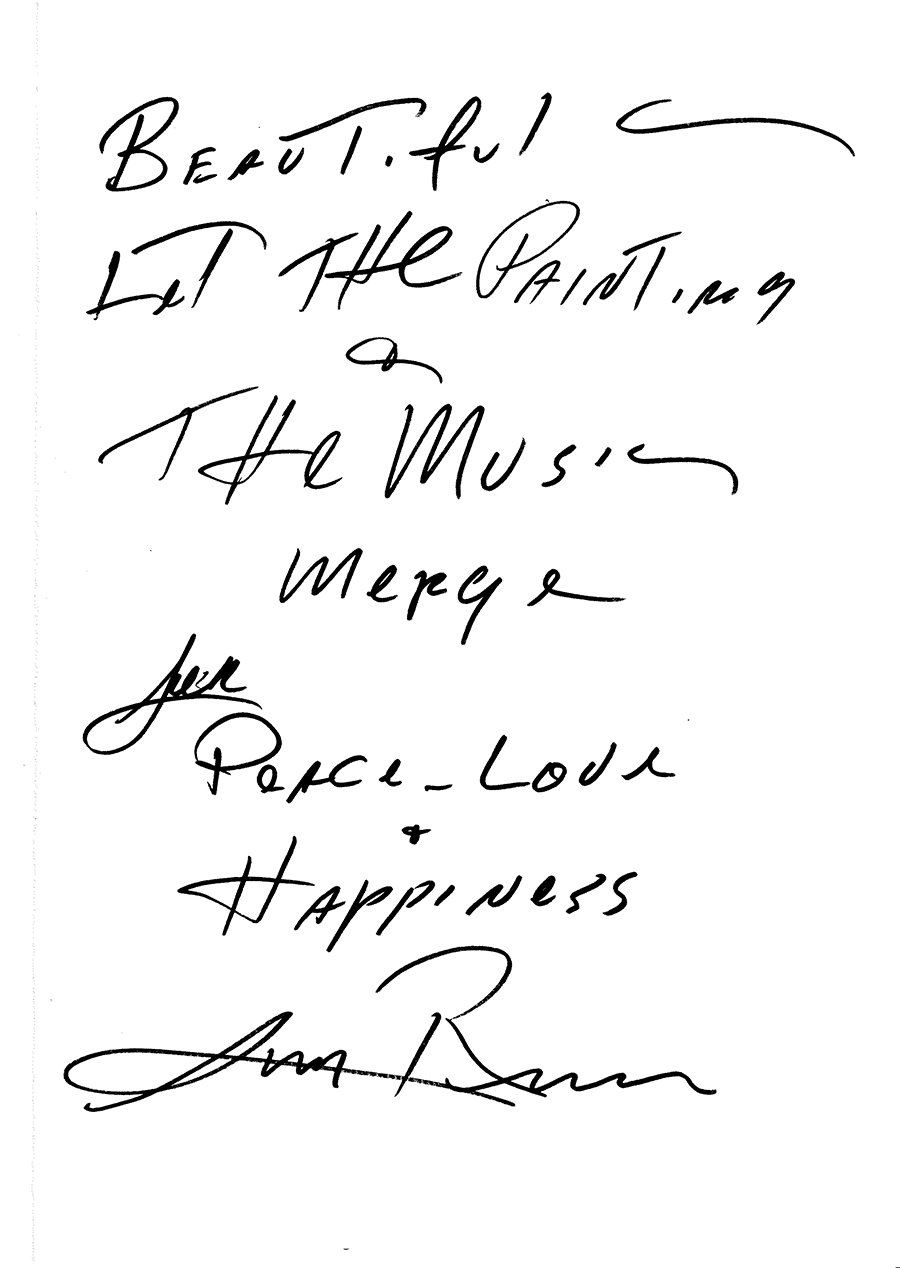 Beautiful
Let the Painting
&
The Music
Merge
Peace - Love
+
Happiness